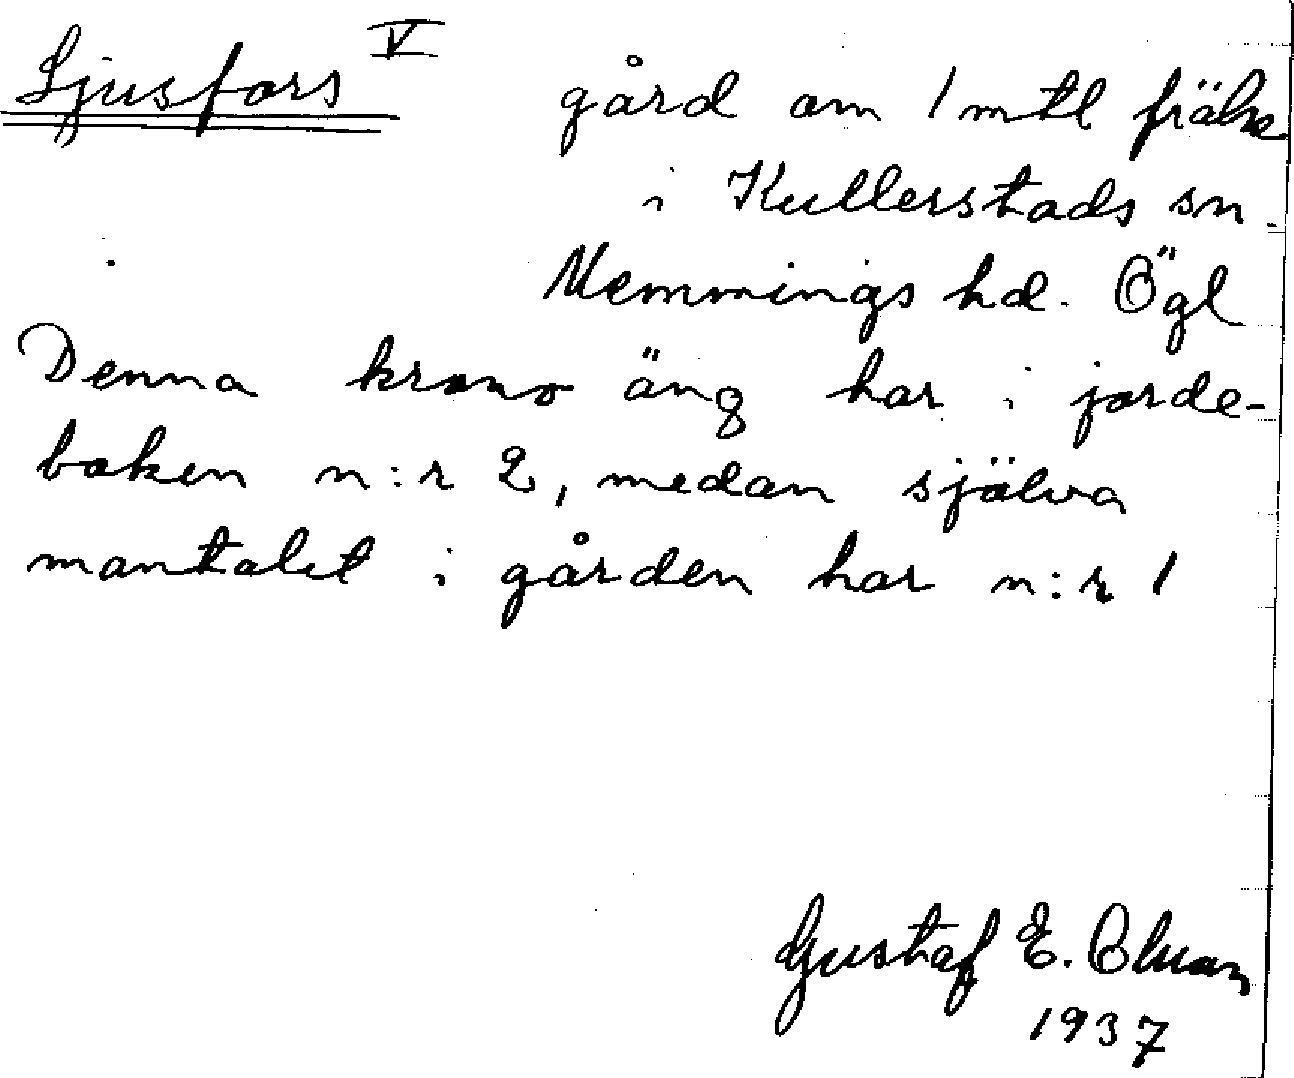 Ljusfors V gård om 1 mtl frälse
i Kullerstads sn.
Memmings hd. Ögl
Denna krono äng har i jorde-
boken n:r 2, medan själva
mantalet i gården har n:r 1
Gustaf E. Olsson
1937